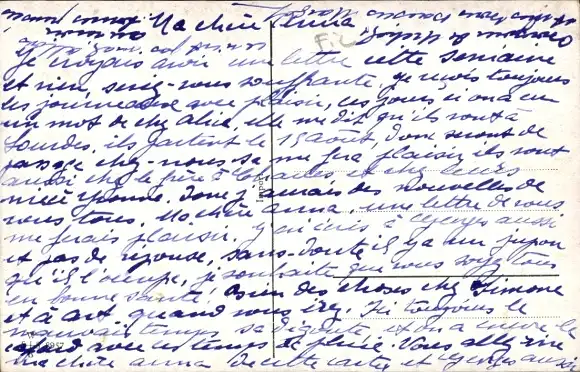 Ma chère Anna
Je croyais avoir une lettre cette semaine
et rien, seriez-vous souffrante, je reçois toujours
les journeaux avec plaisir, ces jours ci on a eu
un mot de chez Alice, elle me dit qu'ils vont à
Lourdes, ils partent le 15 août, donc seront de
passage chez-nous sa me fera plaisir, ils vont
aussi chez le frère à et chez leurs
nièce Yvonne. Donc j'aurais des nouvelles de
vous tous. Ma chère Anna, une lettre de vous
me ferais plaisir. J'ai écris à Georges aussi
et pas de réponse, sans-doute il y a un jupon
qu'il l'occupe, je souhaite que vous soyez tous
en bonne santé! Bien des choses chez Simone
et à art quand vous irez. Ici toujours le
mauvais temps sa dégoute et on a encore le
cafard avec ces temps de pluie. Vous allez rire
ma chère Anna de cette carte et Georges aussi